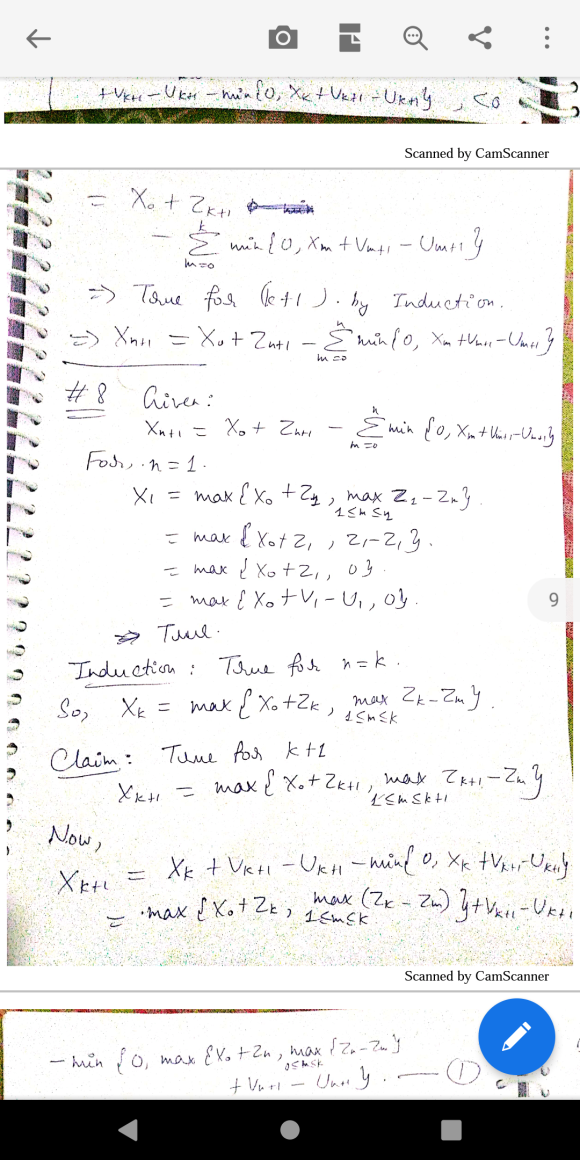 + V_{k+1} - U_{k+1} - min{0, X_k + V_{k+1} - U_{k+1}}, <0
Scanned by CamScanner
= X_0 + Z_{k+1}
- \sum_{m=0}^{k} min{0, X_m + V_{m+1} - U_{m+1}}
=> True for (k+1). by Induction.
=> X_{n+1} = X_0 + Z_{n+1} - \sum_{m=0}^{n} min{0, X_m + V_{m+1} - U_{m+1}}
#8 Given:
X_{n+1} = X_0 + Z_{n+1} - \sum_{m=0}^{n} min{0, X_m + V_{m+1} - U_{m+1}}
For, n = 1.
X_1 = max{X_0 + Z_1, max_{1≤n≤1} Z_1 - Z_n}
= max{X_0 + Z_1, Z_1 - Z_1}.
= max{X_0 + Z_1, 0}.
= max{X_0 + V_1 - U_1, 0}.
=> True.
9
Induction: True for n = k.
So, X_k = max{X_0 + Z_k, max_{1≤m≤k} Z_k - Z_m}.
Claim: True for k+1
X_{k+1} = max{X_0 + Z_{k+1}, max_{1≤m≤k+1} Z_{k+1} - Z_m}
Now,
X_{k+1} = X_k + V_{k+1} - U_{k+1} - min{0, X_k + V_{k+1} - U_{k+1}}
= max{X_0 + Z_k, max_{1≤m≤k} (Z_k - Z_m)} + V_{k+1} - U_{k+1}
Scanned by CamScanner
- min{0, max{X_0 + Z_n, max_{0≤m≤k} {Z_n - Z_m}
+ V_{n+1} - U_{n+1}}. — (1)